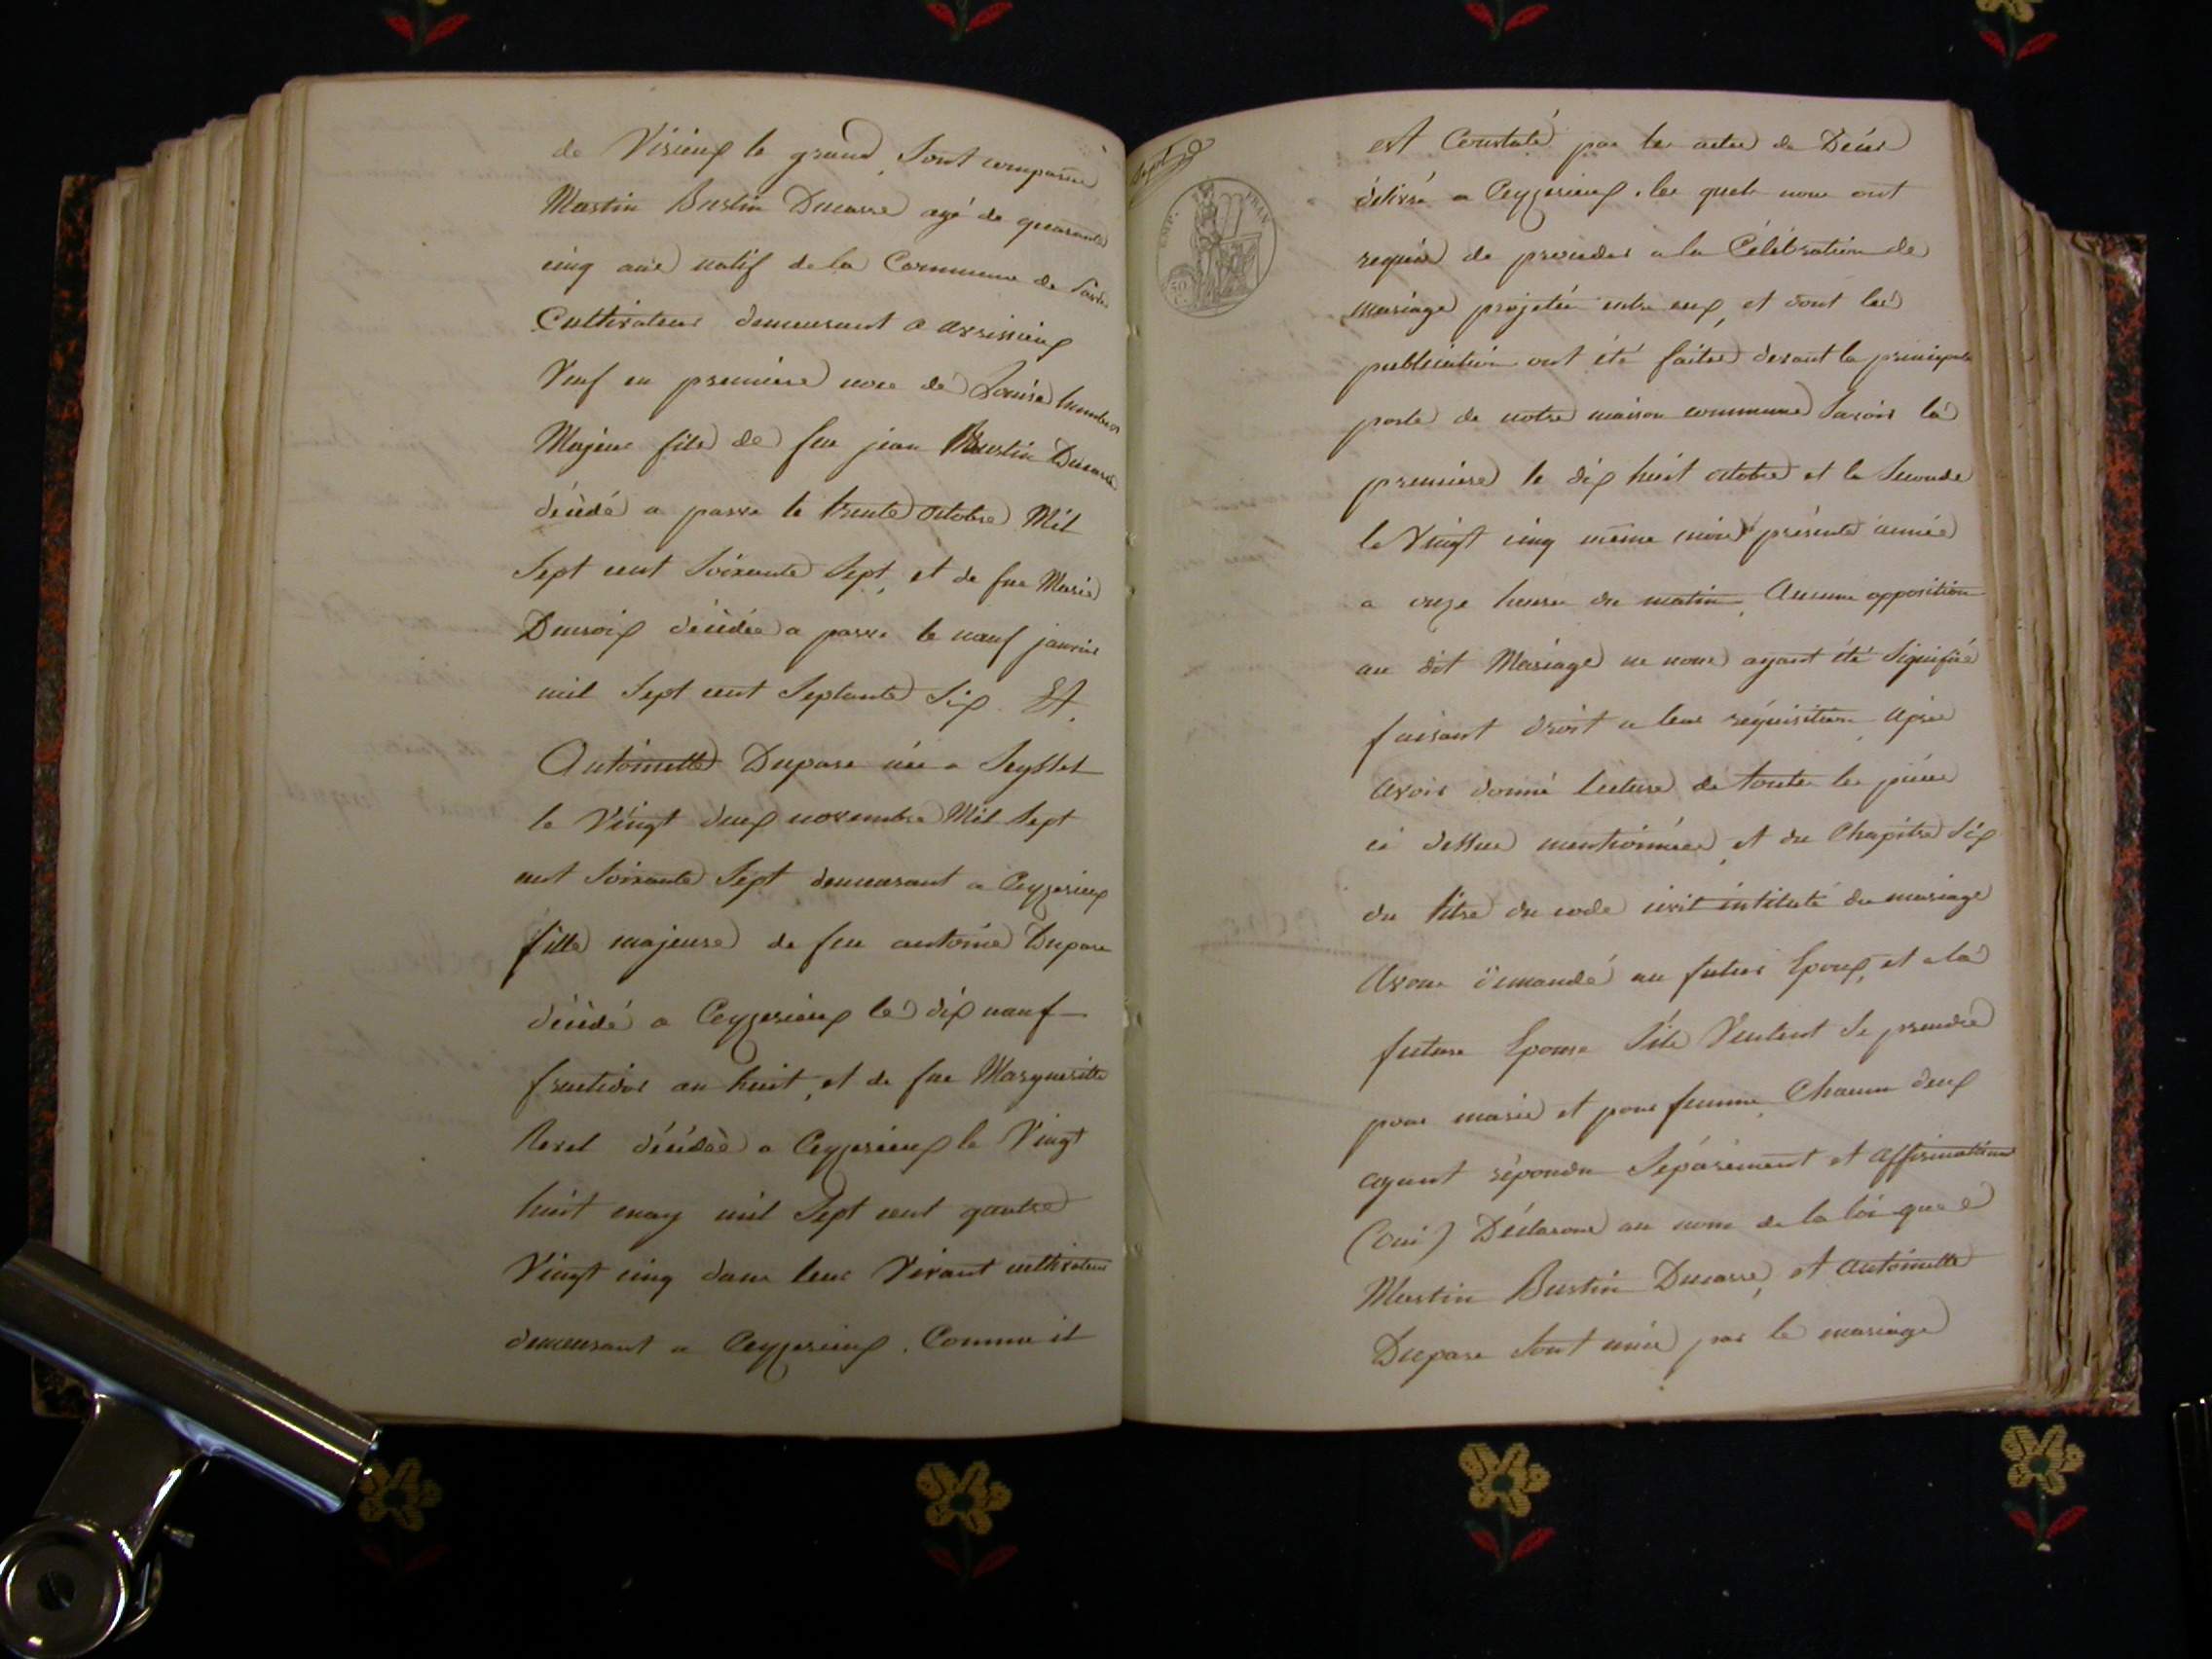 de Virieux le grand, Sont comparus
Martin Bustin Ducarre agé de quarante
cinq ans natif de la Commune de
Cultivateur demeurant a arvissieux
Veuf en première noce de Louise humbert
Majeur fils de feu jean Bustin Ducarre
décédé a parve le trente octobre Mil
Sept cent Soixante Sept, et de fue Marie
décédée a parve le neuf janvier
mil Sept cent Septante Six. Et.
Antoinette Dupare née a Seyssel
le Vingt deux novembre Mil Sept
cent Soixante Sept demeurant a Ceyzerieux
fille majeure de feu antoine Dupare
décédé a Ceyzerieux le dix neuf
fructidor an huit, et de fue Margueritte
décédée a Ceyzerieux le Vingt
huit may mil Sept cent qautre
Vingt cinq dans leur Vivant cultivateurs
demeurant a Ceyzerieux. Comme il
Sept
EMP. FRAN.
50 C.
est Constaté par les actes de Décès
délivré a Ceyzerieux. les quels nous ont
requis de proceder a la Célébration de
mariage projetée entre eux, et dont les
publication ont été faites devant la principale
porte de notre maison commune Savoir la
premiere le dix huit octobre et la Seconde
le Vingt cinq même mois présente année
a onze heures du matin, Aucune opposition
au dit Mariage ne nous ayant été Signifiée
faisant droit a leur réquisition, Après
Avoir donné lecture de toutes les pièces
ci dessus mentionnées, et du Chapitre Six
du titre du code civil intitulé du mariage
Avons demandé au futur Epoux, et a la
future Epouse S'ils Veulent Se prendre
pour marie et pour femme, Chacun deux
ayant répondu Séparément et affirmativement
(Oui) Déclarons au nom de la loi que
Martin Bustin Ducarre, et antoinette
Dupare Sont unis par le mariage